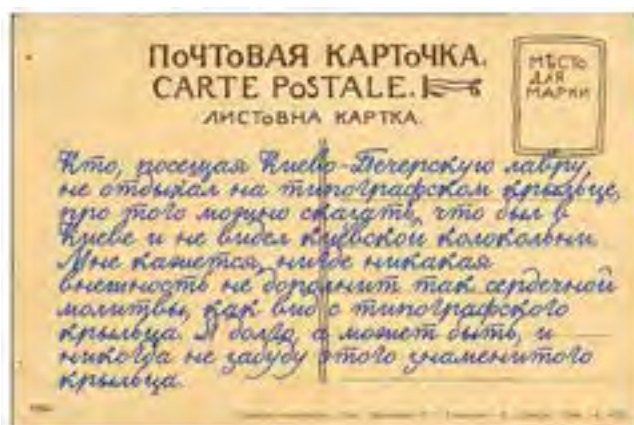 ПоЧТоВАЯ КАРТоЧКА.
CARTE PoSTALE.
ЛИСТоВНА КАРТКА.
МѢСТО
ДЛЯ
МАРКИ
Кто, посещая Киево-Печерскую лавру,
не отдыхал на типографском крыльце,
про того можно сказать, что был в
Киеве и не видел киевской колокольни.
Мне кажется, нигде никакая
внешность не дополнит так сердечной
молитвы, как вид с типографского
крыльца. Я долго, а может быть, и
никогда не забуду этого знаменитого
крыльца.